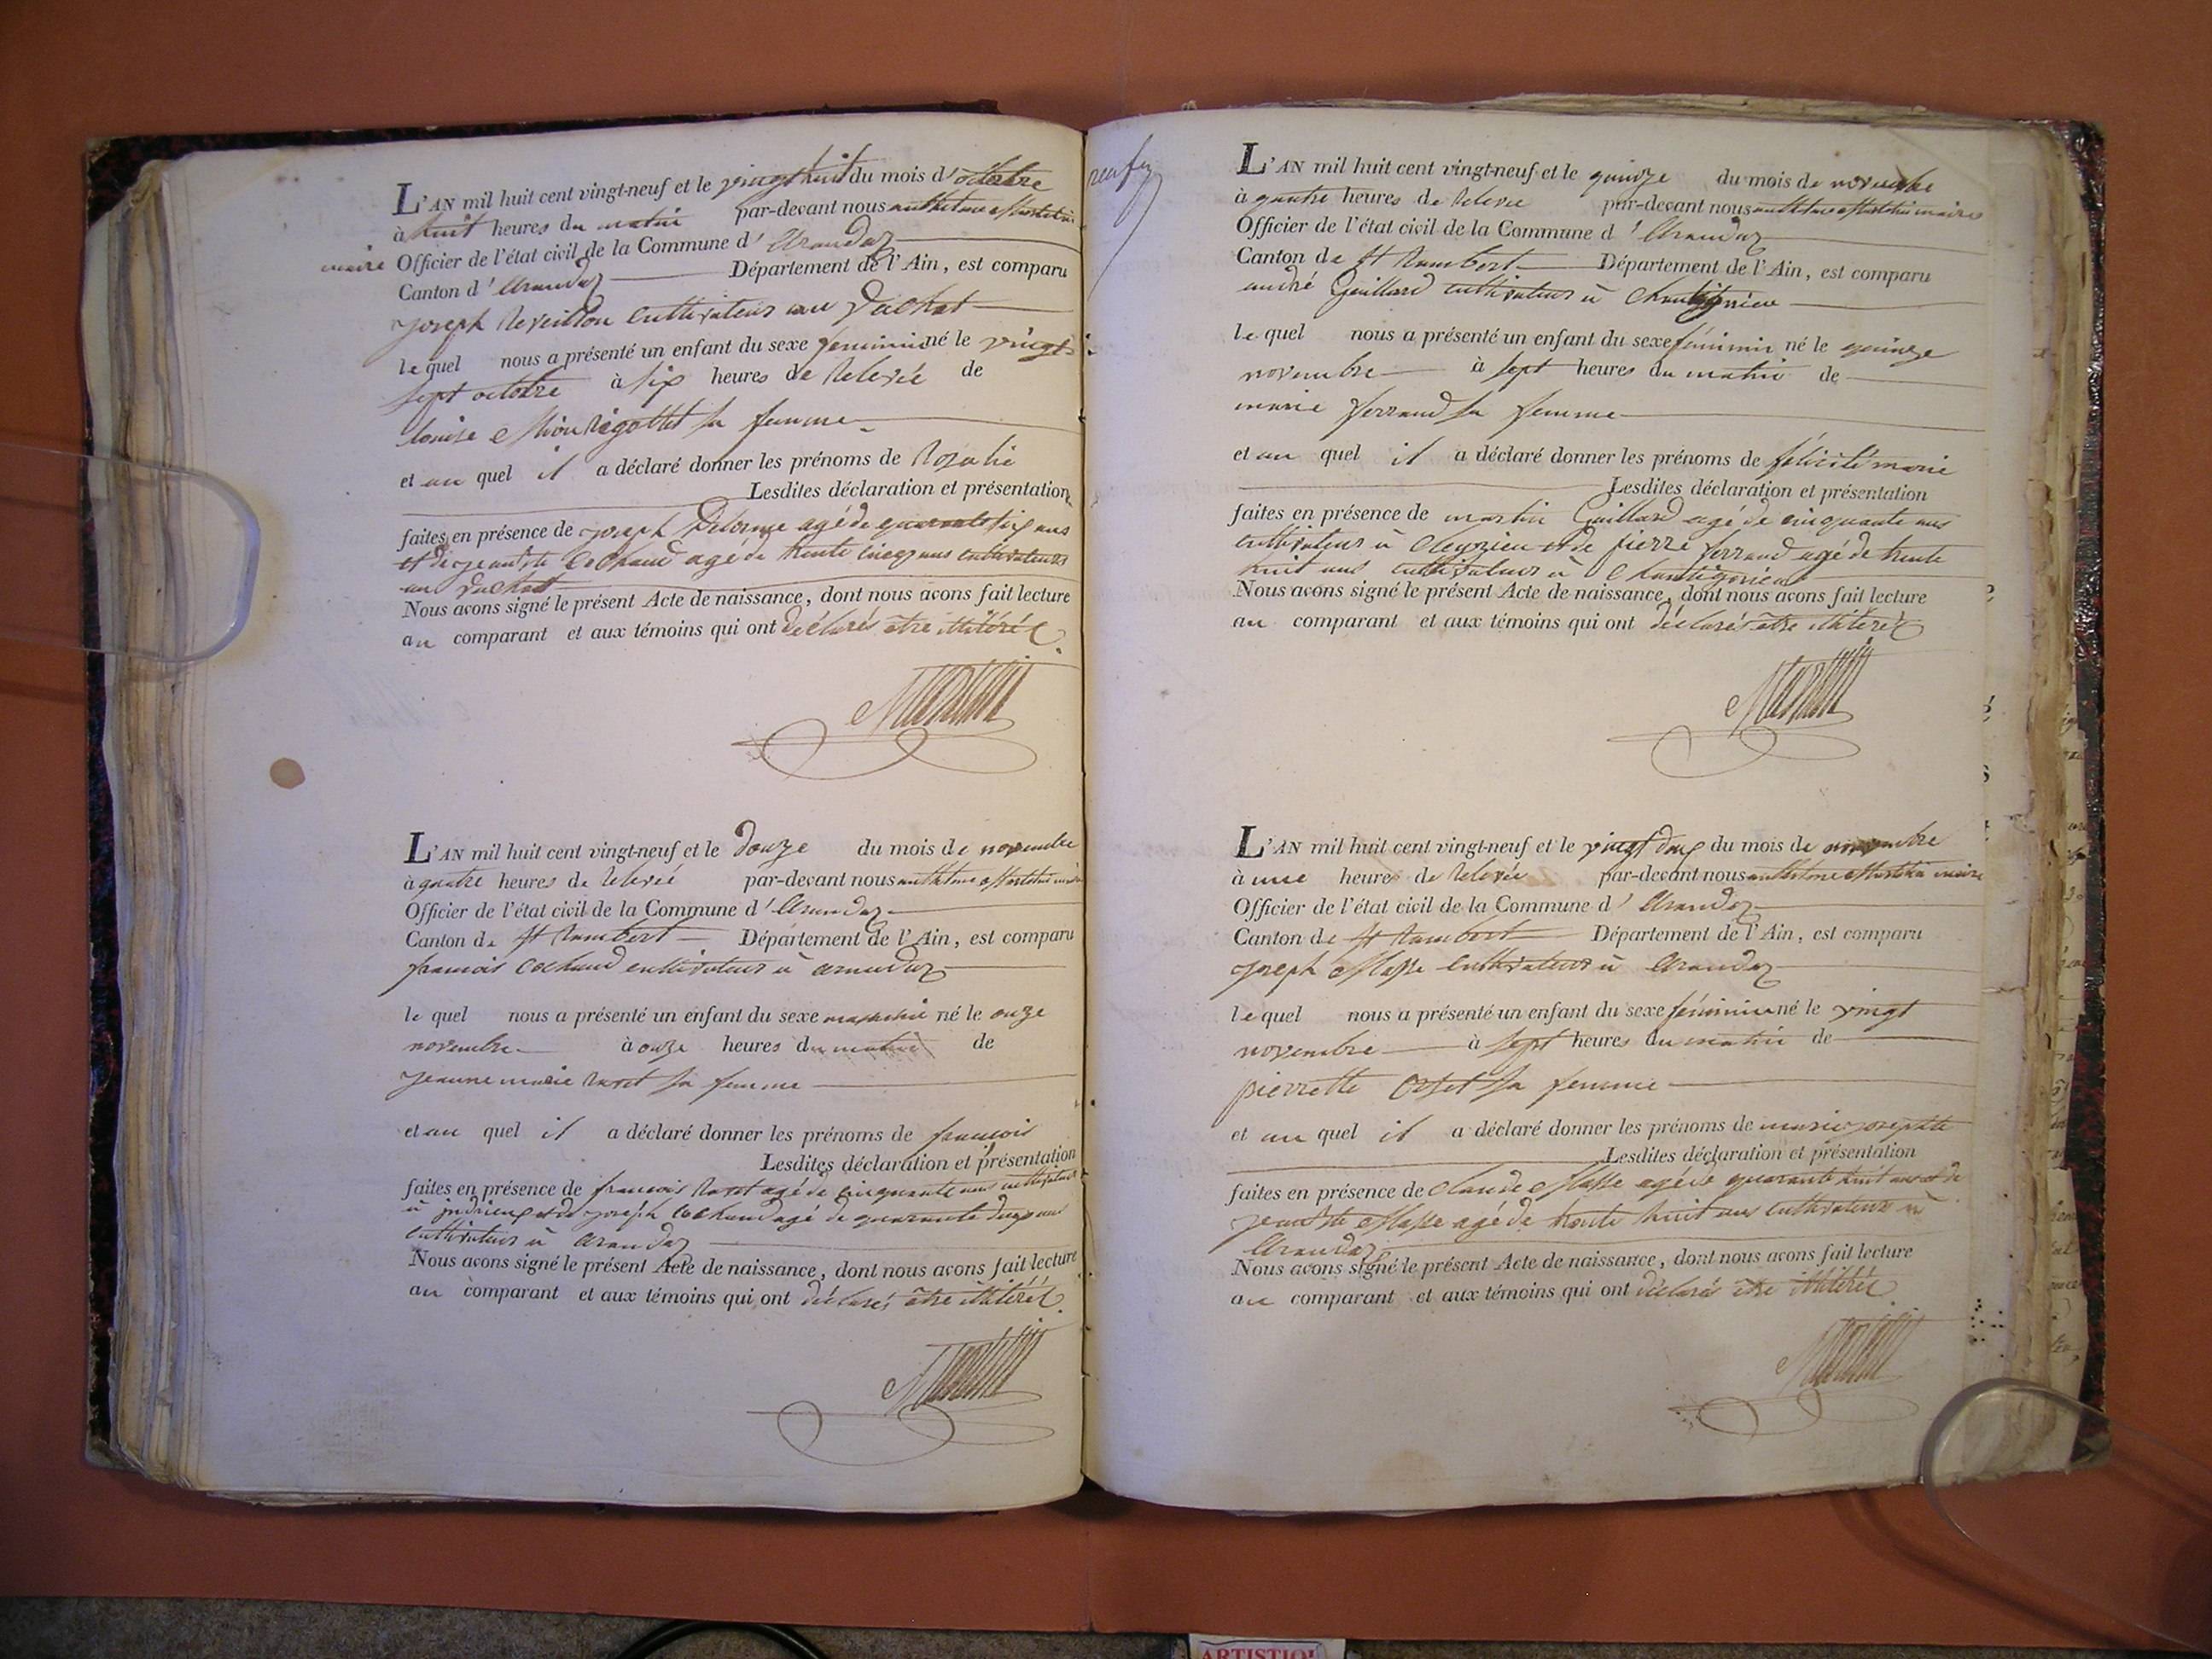 L'AN mil huit cent vingt-neuf et le vingt huit du mois d'octobre
à huit heures du matin par-devant nous anthelme Martin
maire Officier de l'état civil de la Commune d'Arandaz
Canton d'Arandaz Département de l'Ain, est comparu
joseph Reveillon cultivateur au Vachat
lequel nous a présenté un enfant du sexe feminin né le vingt
sept octobre à six heures de relevée de
louise Rigottet sa femme
et au quel il a déclaré donner les prénoms de Rosalie
Lesdites déclaration et présentation
faites en présence de joseph Delorme agé de quarante six ans
et de jean bte Cochaud agé de trente cinq ans cultivateurs
au Vachat
Nous avons signé le présent Acte de naissance, dont nous avons fait lecture
au comparant et aux témoins qui ont déclarés être illitérés
Martin
L'AN mil huit cent vingt-neuf et le douze du mois de novembre
à quatre heures de relevée par-devant nous anthelme Martin maire
Officier de l'état civil de la Commune d'Arandaz
Canton de St Rambert Département de l'Ain, est comparu
francois Cochaud cultivateur à arandaz
le quel nous a présenté un enfant du sexe masculin né le onze
novembre à onze heures du matin de
jeanne marie ravet sa femme
et au quel il a déclaré donner les prénoms de francois
Lesdites déclaration et présentation
faites en présence de francois ravet agé de cinquante ans cultivateur
à indrieux et de joseph Cochaud agé de quarante deux ans
cultivateur à Arandaz
Nous avons signé le présent Acte de naissance, dont nous avons fait lecture
au comparant et aux témoins qui ont déclarés être illitérés
Martin
neuf
L'AN mil huit cent vingt-neuf et le quinze du mois de novembre
à quatre heures de relevée par-devant nous anthelme Martin maire
Officier de l'état civil de la Commune d'Arandaz
Canton de St Rambert Département de l'Ain, est comparu
andré Guillard cultivateur à Chantignieu
le quel nous a présenté un enfant du sexe féminin né le quinze
novembre à sept heures du matin de
marie ferrand sa femme
et au quel il a déclaré donner les prénoms de félicité marie
Lesdites déclaration et présentation
faites en présence de martin Guillard agé de cinquante ans
cultivateur à Cleyzieu et de pierre ferrand agé de trente
huit ans cultivateur à Chantignieu
Nous avons signé le présent Acte de naissance, dont nous avons fait lecture
au comparant et aux témoins qui ont déclarés être illitérés
Martin
L'AN mil huit cent vingt-neuf et le vingt deux du mois de novembre
à une heure de relevée par-devant nous anthelme Martin maire
Officier de l'état civil de la Commune d'Arandaz
Canton de St Rambert Département de l'Ain, est comparu
joseph Masse cultivateur à Arandaz
le quel nous a présenté un enfant du sexe féminin né le vingt
novembre à sept heures du matin de
pierrette Orset sa femme
et au quel il a déclaré donner les prénoms de marie josephte
Lesdites déclaration et présentation
faites en présence de Claude Masse agé de quarante huit ans et de
jean bte Masse agé de trente huit ans cultivateurs à
Arandaz
Nous avons signé le présent Acte de naissance, dont nous avons fait lecture
au comparant et aux témoins qui ont déclarés être illitérés
Martin